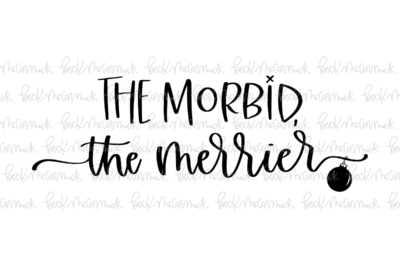 THE MORBID,
the merrier